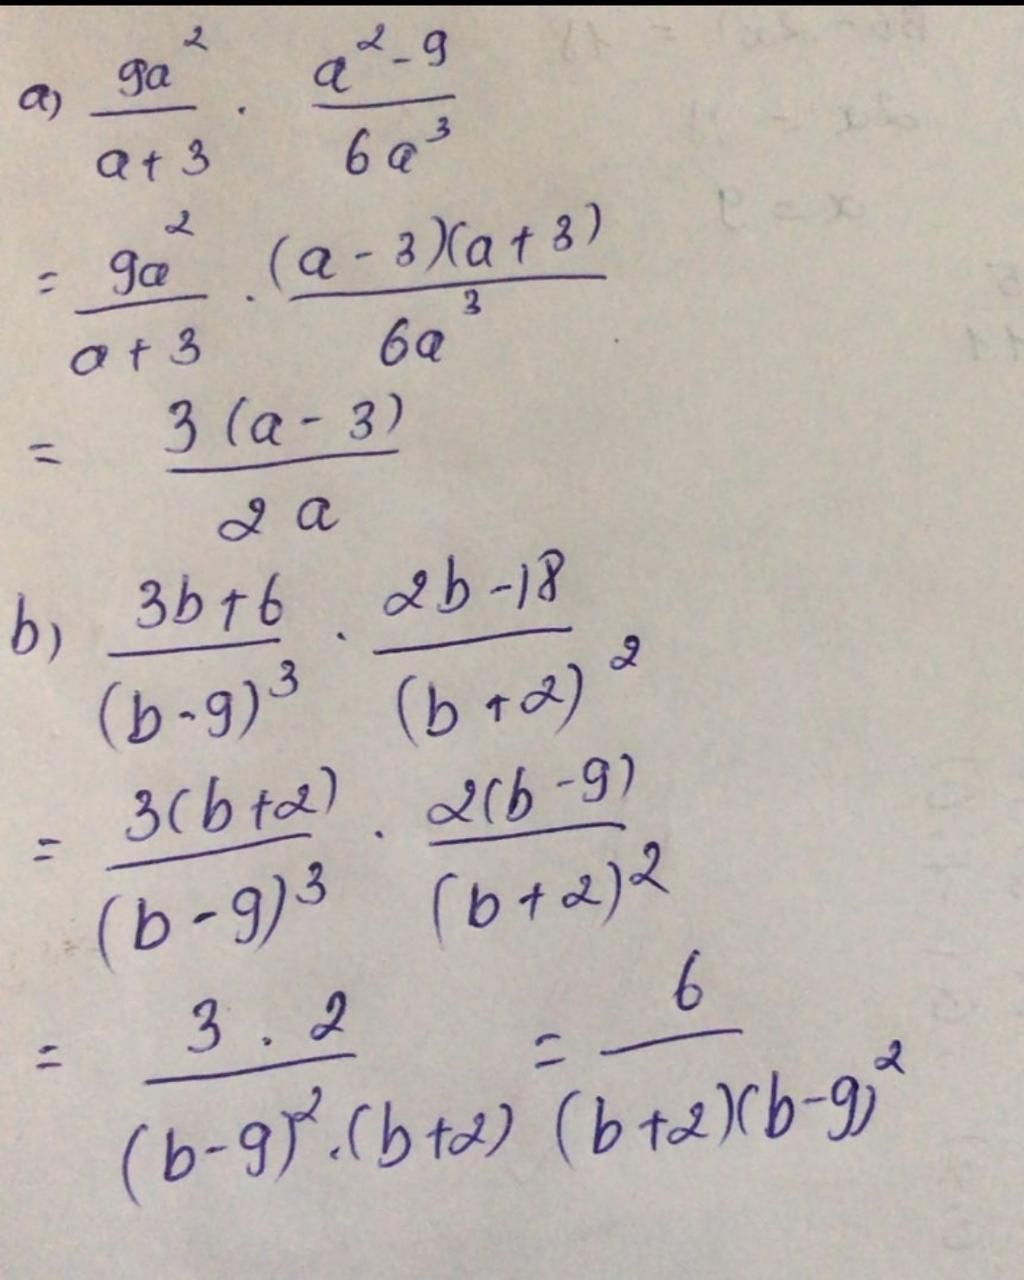 a) 9a²/(a+3) · (a²-9)/(6a³)
= 9a²/(a+3) · (a-3)(a+3)/(6a³)
= 3(a-3)/(2a)
b) (3b+6)/(b-9)³ · (2b-18)/(b+2)²
= 3(b+2)/(b-9)³ · 2(b-9)/(b+2)²
= 3.2/((b-9)².(b+2)) = 6/((b+2)(b-9)²)